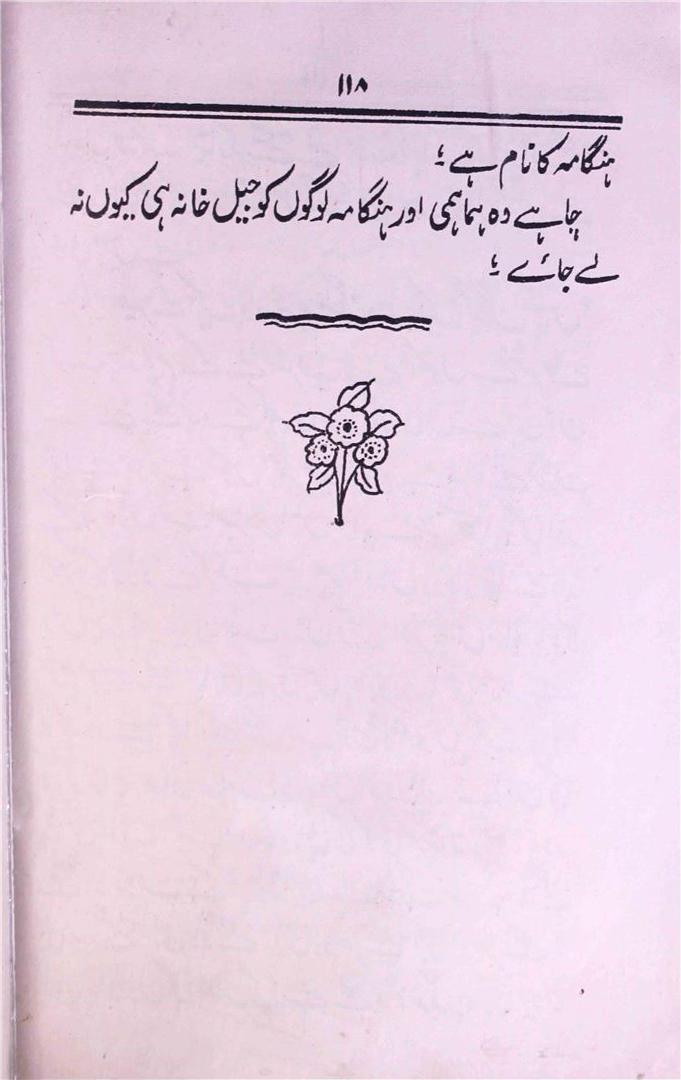 ۱۱۸
ہنگامہ کا نام ہے ؛
چاہے وہ ہماہمی اور ہنگامہ لوگوں کو جیل خانہ ہی کیوں نہ
لے جائے ؛